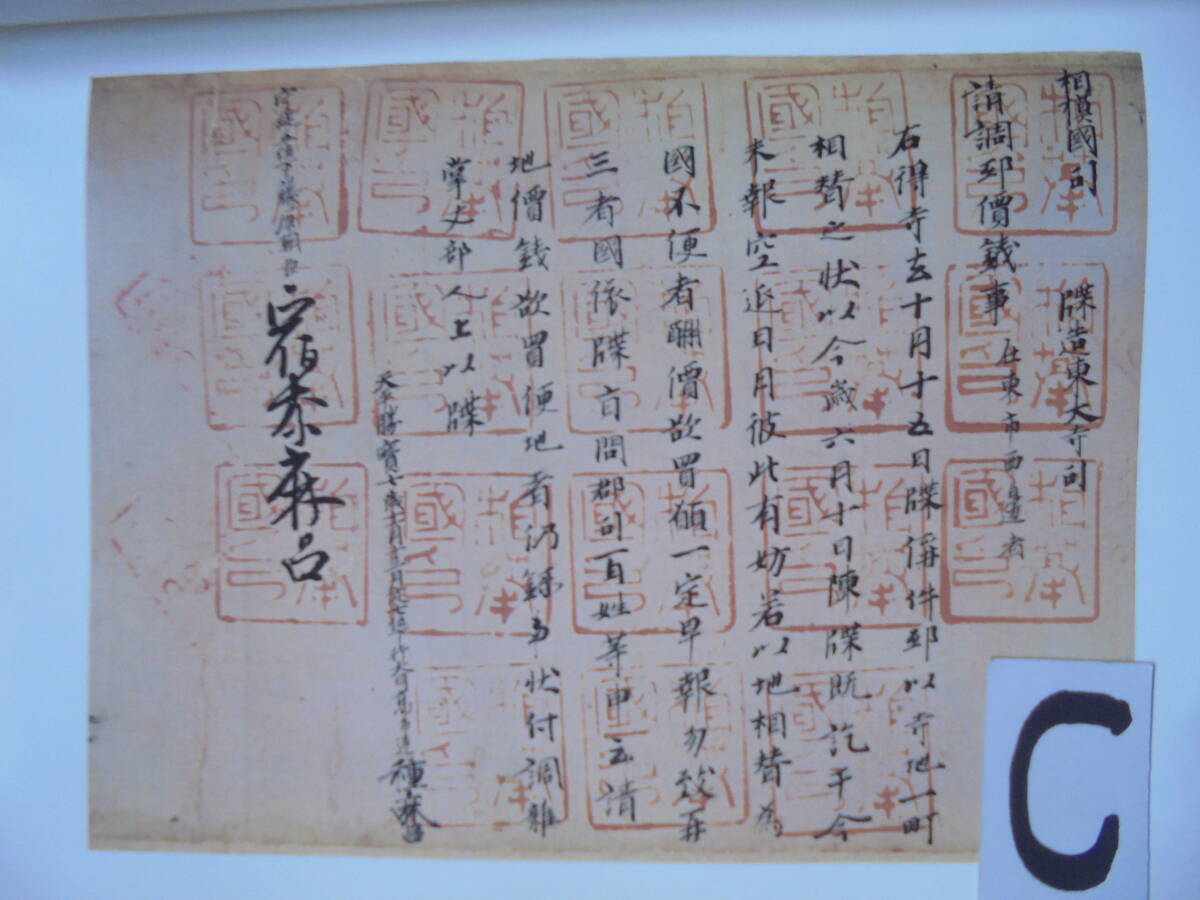 相模國司　牒造東大寺司
請調邸價錢事 在東市西邊者
右得寺去十月十五日牒偁件邸以寺地一町
相替之状以今歳六月十日陳牒既訖于今
未報空延日月彼此有妨若以地相替為
國不便者酬價欲買願一定早報勿致再
三者國依牒旨問郡司百姓等申云請
地價錢欲買便地者仍録事状付調雑
掌丈部人上以牒
天平勝寶七歳十一月十三日
藤原朝臣
佐伯
相模國印
C